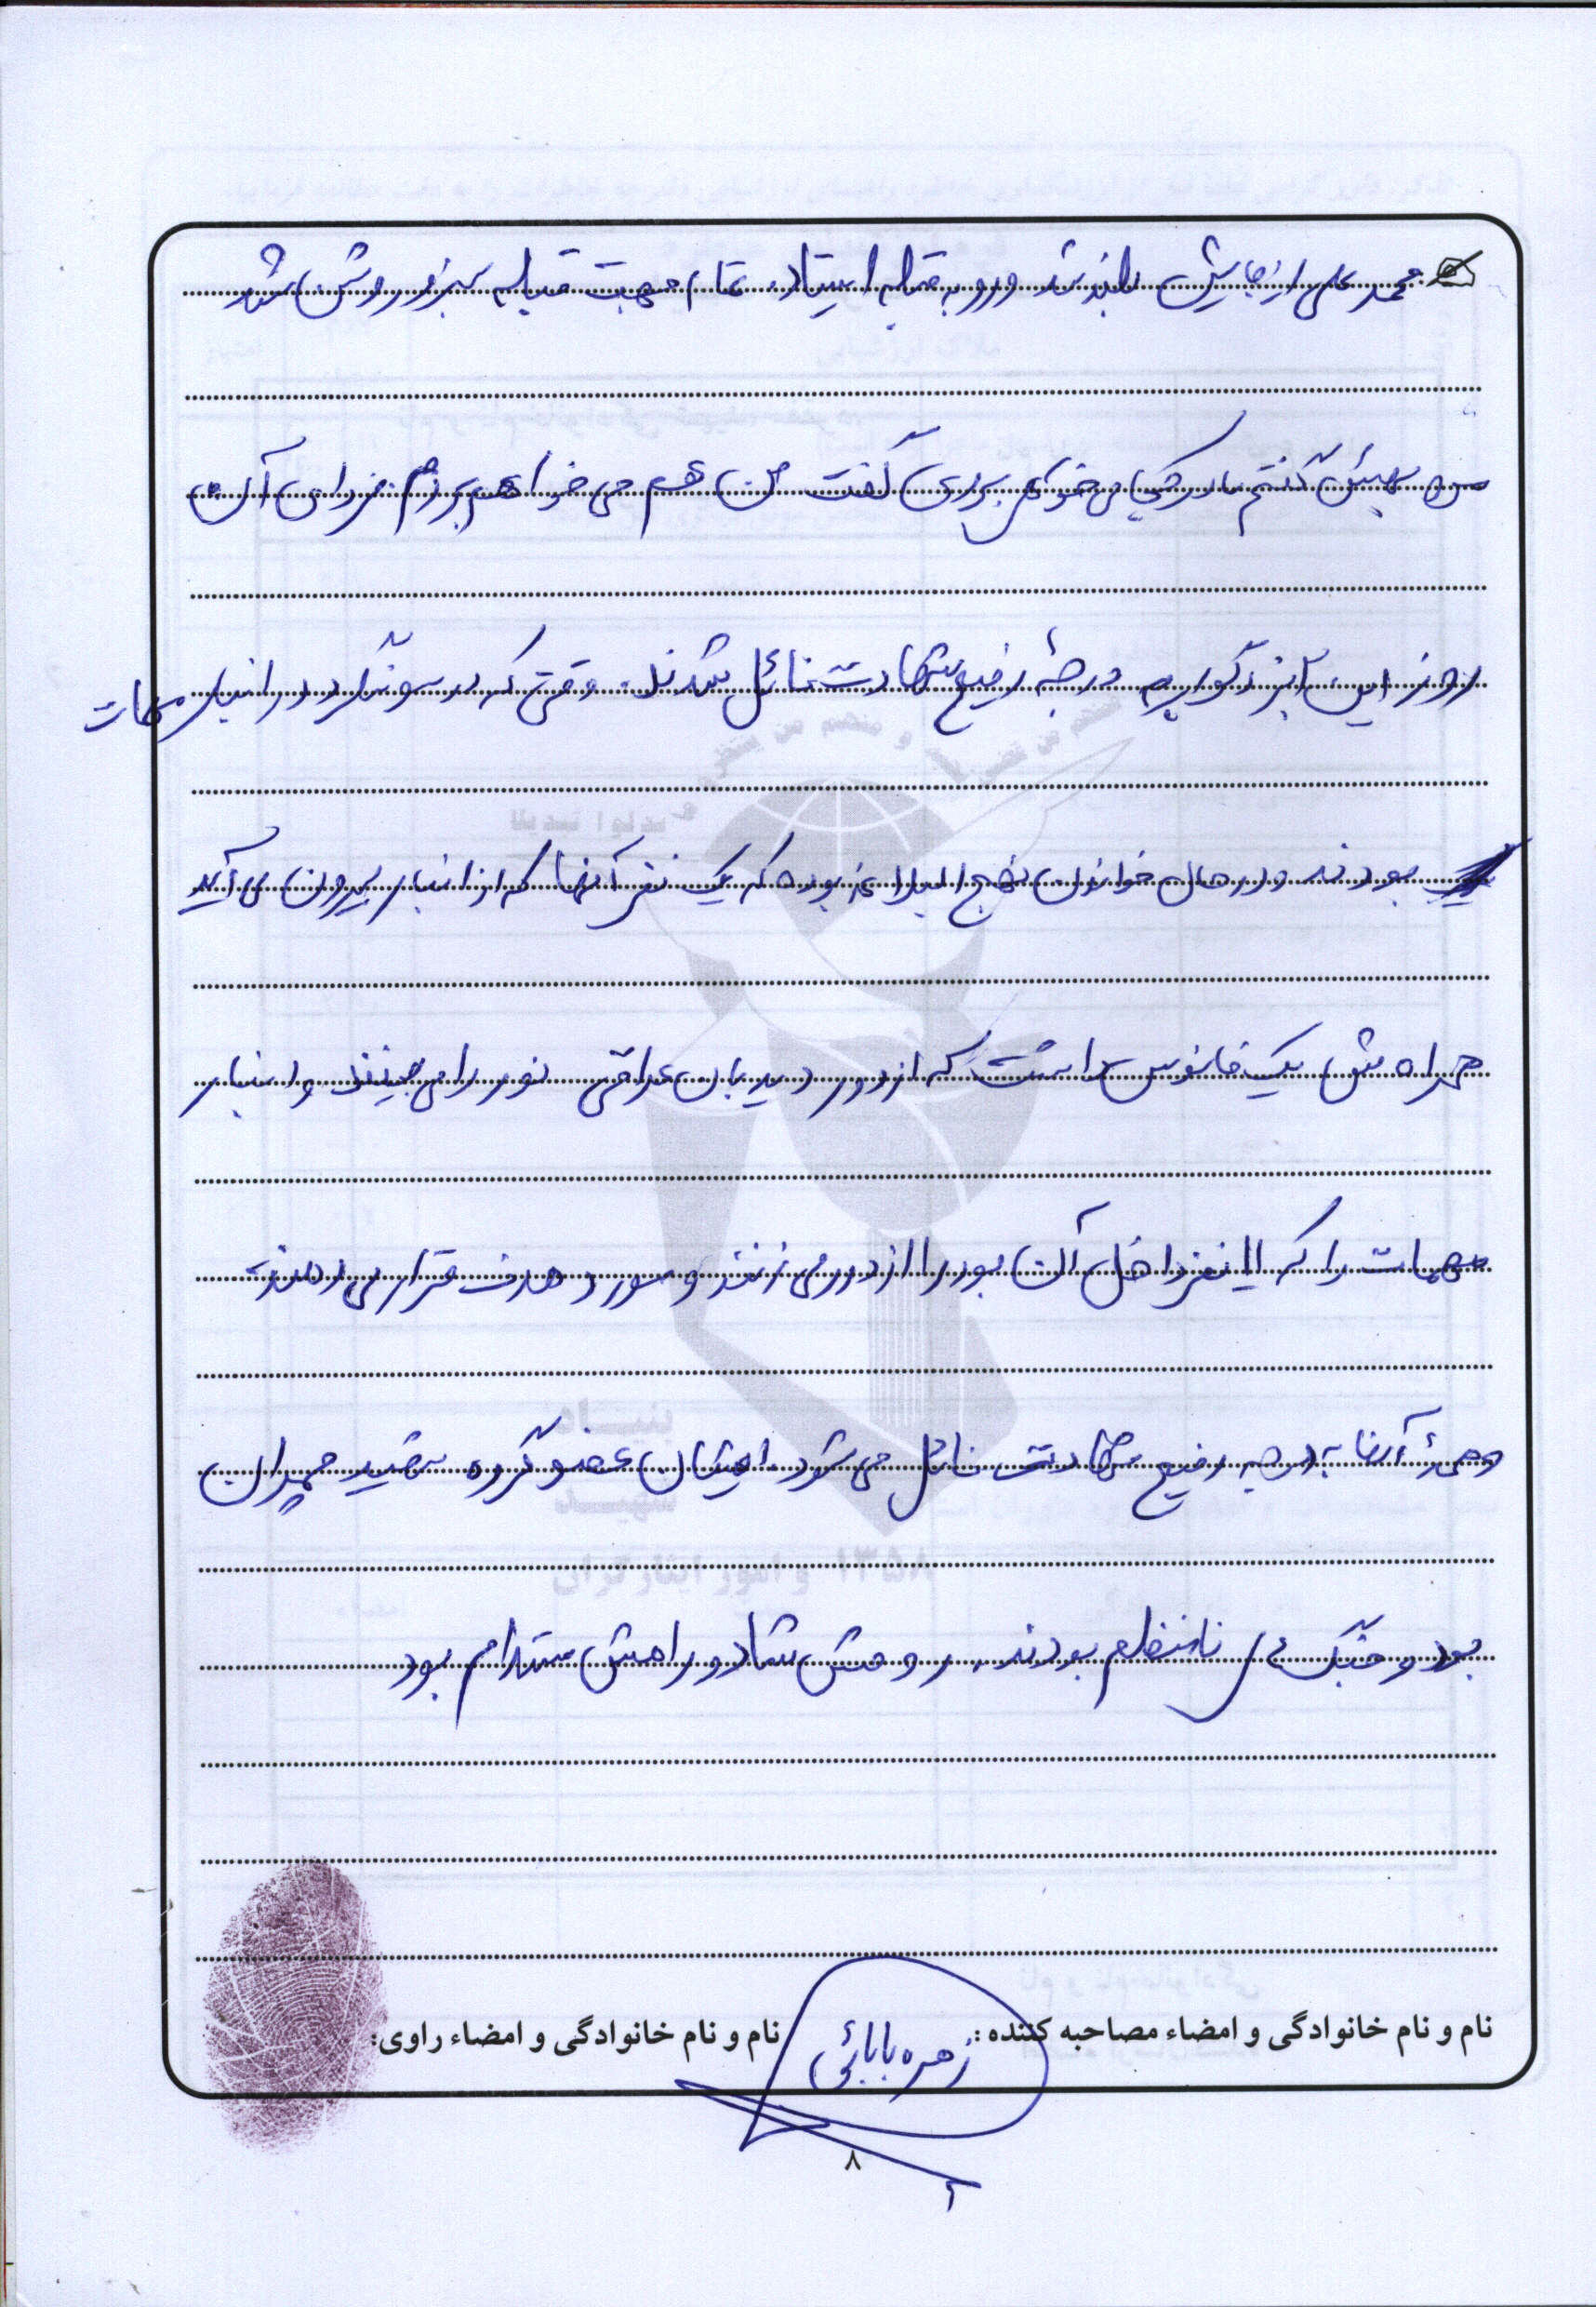 محمد علی از جایش بلند شد و رو به قبله ایستاد. تمام جهت قبله سبز و روشن شد
من بهش گفتم مادر کجا می خواهی بروی گفت من هم می خواهم بروم. فردای آن
روز این بزرگوار به درجهٔ رفیع شهادت نائل شدند. وقتی که در سوسنگرد در انبار مهمات
بودند و در حال خواندن نهج البلاغه بوده که یک نفر آنها که از انبار بیرون می آید
همراهش یک فانوس داشت که از دور دیدبان عراقی نور را می بینند و انبار
مهمات را که 11 نفر داخل آن بود را از دور می زنند و مورد هدف قرار می دهند.
و همهٔ آنها به درجه رفیع شهادت نائل می شود. ایشان عضو گروه شهید چمران
بود و جنگ های نامنظم بودند. روحش شاد و راهش مستدام بود
نام و نام خانوادگی و امضاء مصاحبه کننده : زهره بابائی نام و نام خانوادگی و امضاء راوی:
۸